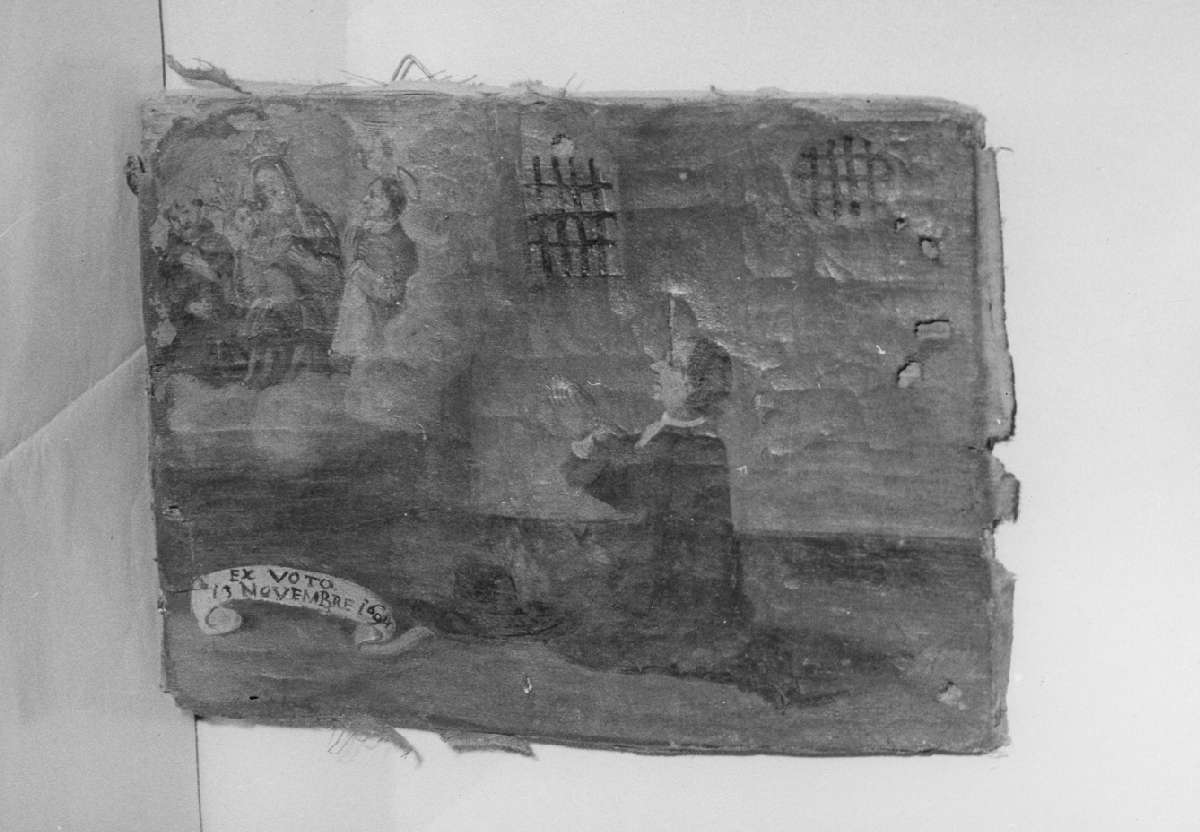 EX VOTO
13 NOVEMBRE 1604